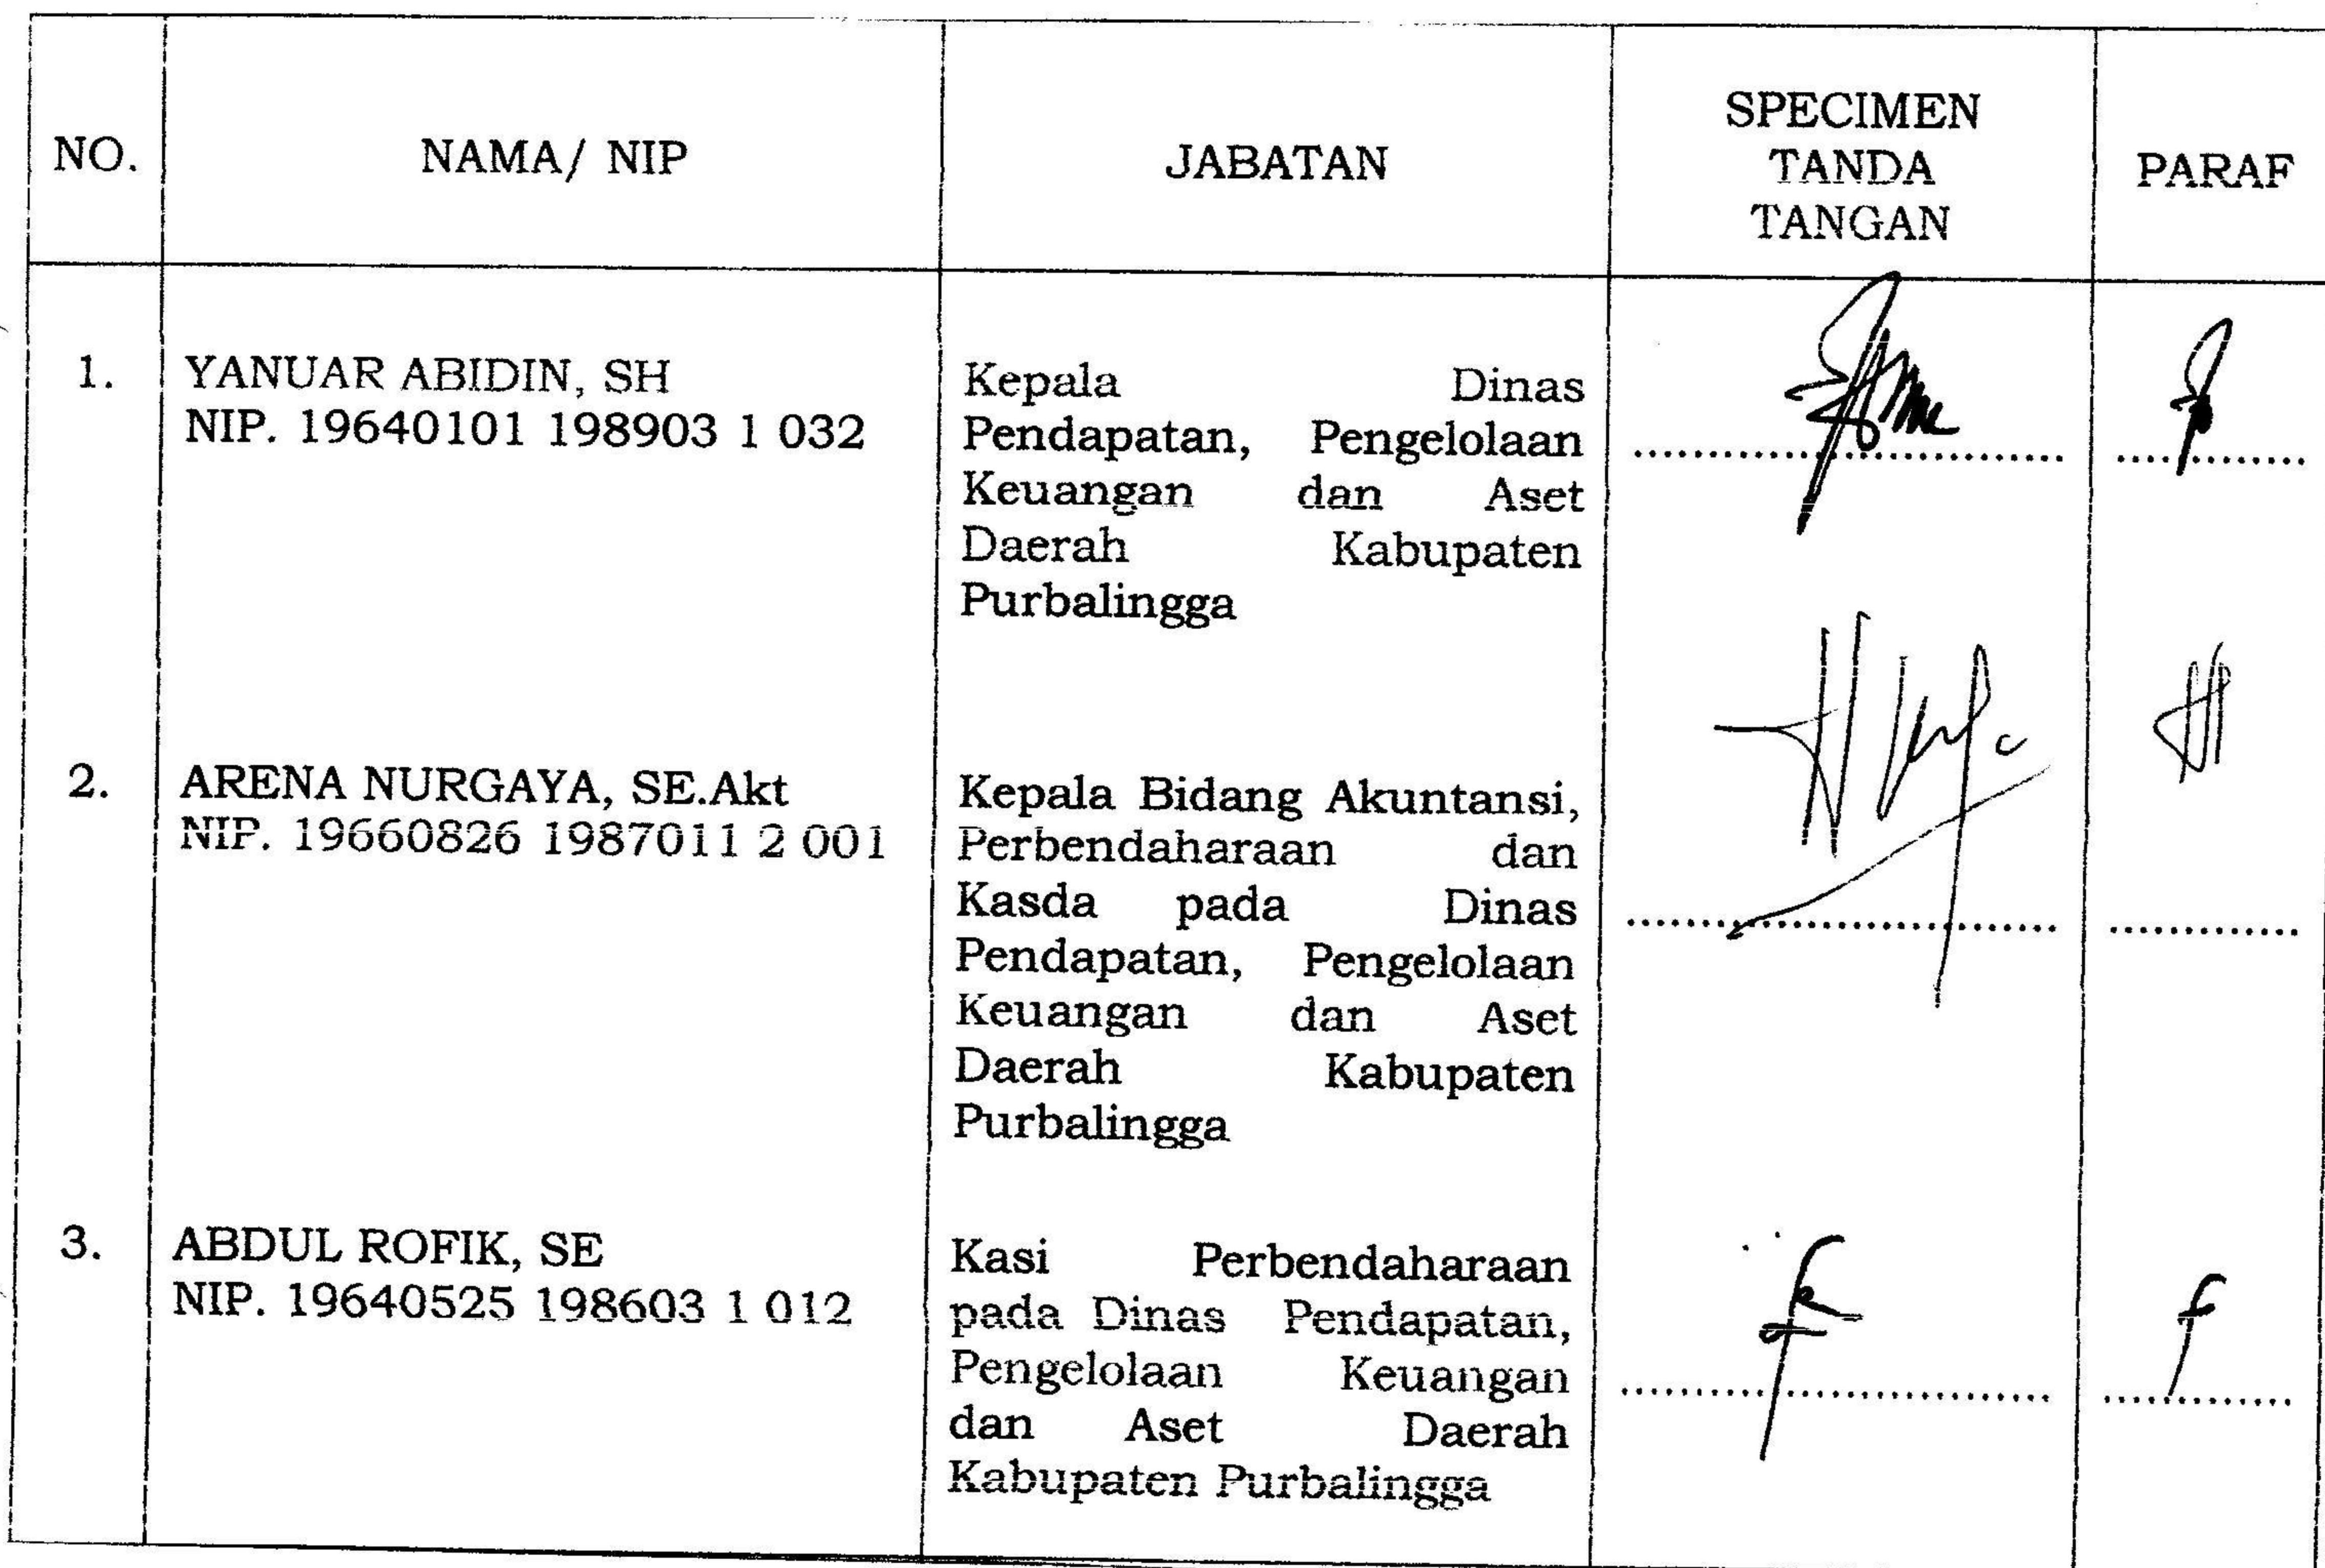 NO.
NAMA/ NIP
JABATAN
SPECIMEN
TANDA
TANGAN
PARAF
1.
YANUAR ABIDIN, SH
NIP. 19640101 198903 1 032
Kepala Dinas
Pendapatan, Pengelolaan
Keuangan dan Aset
Daerah Kabupaten
Purbalingga
2.
ARENA NURGAYA, SE.Akt
NIP. 19660826 1987011 2 001
Kepala Bidang Akuntansi,
Perbendaharaan dan
Kasda pada Dinas
Pendapatan, Pengelolaan
Keuangan dan Aset
Daerah Kabupaten
Purbalingga
3.
ABDUL ROFIK, SE
NIP. 19640525 198603 1 012
Kasi Perbendaharaan
pada Dinas Pendapatan,
Pengelolaan Keuangan
dan Aset Daerah
Kabupaten Purbalingga